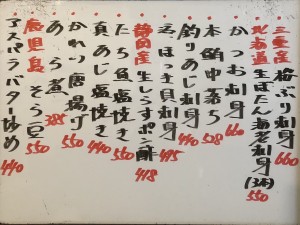 三重産 梅ぶり刺身 660
北海道 生ぼたん海老刺身 (3本) 550
かつお刺身 660
本鮪中落ち 528
釣りあじ刺身 440
ほっき貝刺身 495
静岡産 生しらすポン酢 418
たち魚塩焼き 550
真あじ塩焼き 440
かれい唐揚げ 550
あら煮 385
鹿児島 そら豆 550
アスパラバター炒め 440